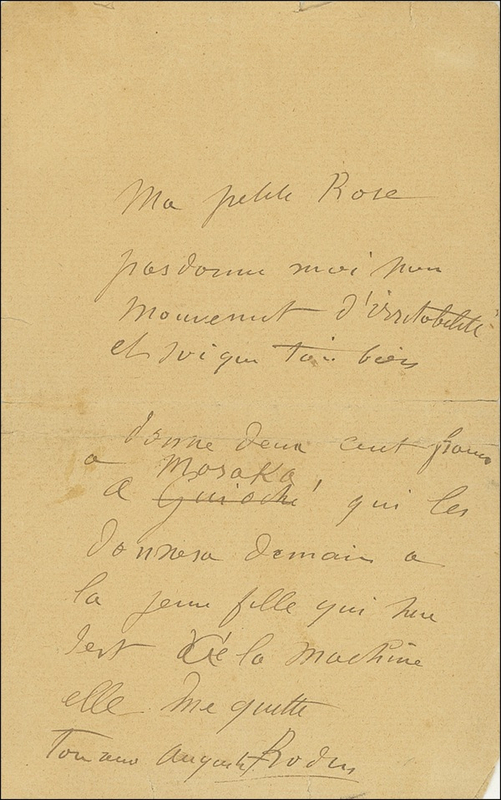 Ma petite Rose
pardonne moi mon
mouvement d'irritabilité
et soigne toi bien
donne deux cent francs
a Mosaka
a Guioché qui les
donnera demain a
la jeune fille qui me
sert de la machine
elle me quitte
Ton ami Auguste Rodin